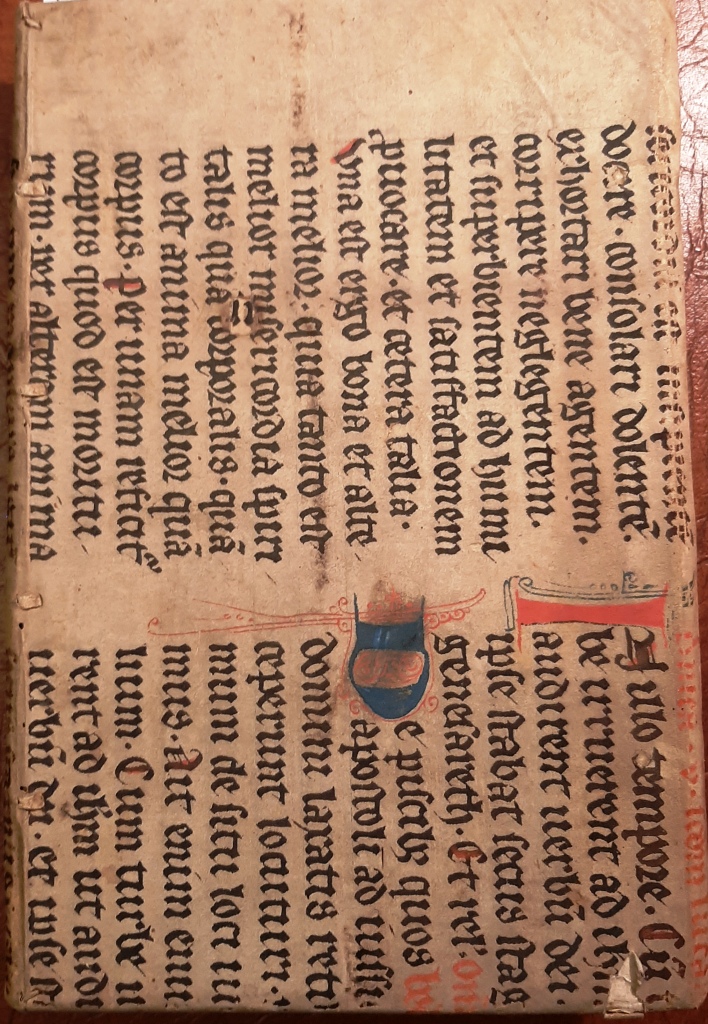 docere. consolari dolentē.
exhortari bene agentem.
corripere neglegentem.
et superbientem ad humi
litatem et satisfactionem
ꝓuocare. et cetera talia.
Una est ergo bona et alte
ra melior. quia tanto est
melior misericordia spiri
talis quā corporalis. quā
to est anima melior quā
corpus. Per unam reficit
corpus quod est moritu
rum. per alteram anima
In illo tempore. Cū t
be irruerent ad ihm
audirent uerbū dei.
ipse stabat secus stag
genesareth. Et rel. om
De piscibꝰ quos
apostoli ad iusse
domini laxatis reti
ceperunt locuturi.
mum de situ loci
mus. Ait enim
lium. Cum turbe
rent ad ihm ut audi
uerbū di. et ipse